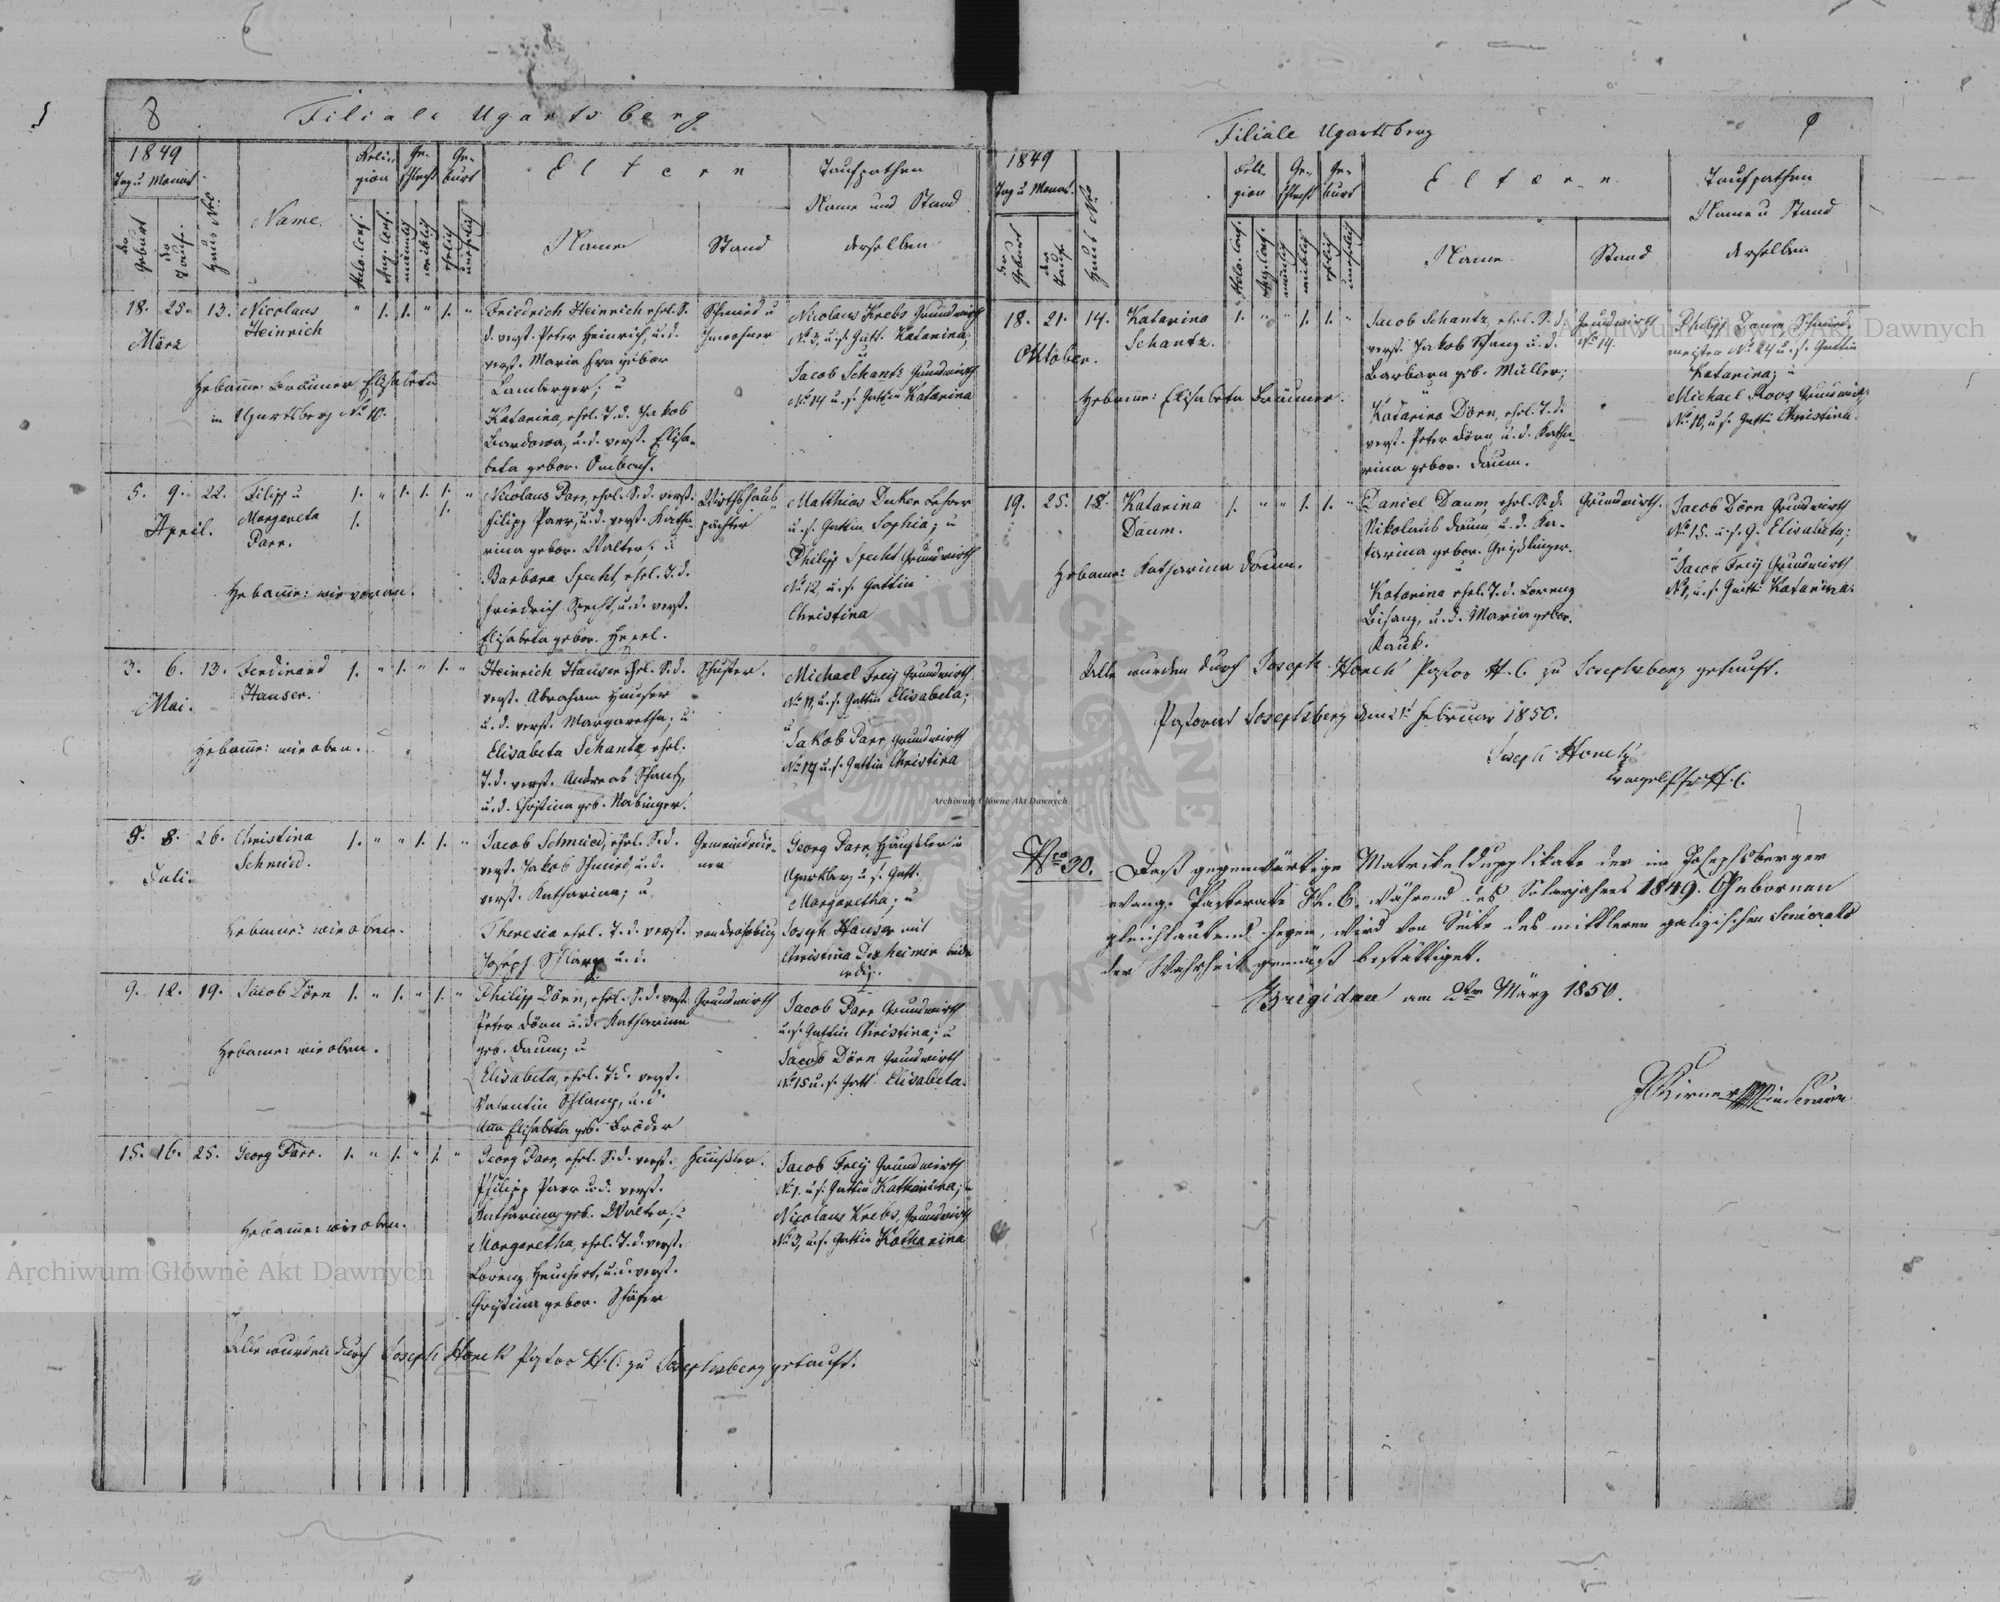 8
Filiale Ugartsberg
1849
Tag u Monat
der Geburt
der Taufe
Haus Nro
Name
Religion
Helv. Conf.
Aug. Conf.
Geschlecht
männlich
weiblich
Geburt
ehelich
unehelich
Eltern
Name
Stand
Taufpathen
Name und Stand
derselben
18. 25. 13. Nicolaus " 1. 1. " 1. "
Heinrich
März
Hebamme Bräumer Elisabeta
in Ugartsberg No 10.
Friedrich Heinrich ehel. S.
d. verst. Peter Heinrich, u. d.
verst. Maria Eva gebor
Lamberger; u
Katarina, ehel. T. d. Jakob
u. d. verst. Elisa-
beta gebor. Ombach.
Schmied u
Inwohner
Nicolaus Krebs Grundwirth
No 3, u. s. Gatt. Katarina;
u
Jacob Schantz Grundwirth
No 14 u. s. Gattin Katarina
5. 9. 22. Filipp u 1. " 1. 1. 1. "
Margareta 1. 1.
Parr.
April.
Hebamme: wie voran.
Nicolaus Parr, ehel. S. d. verst.
Filipp Parr, u. d. verst. Katha-
rina gebor. Walter; u
Barbara Specht, ehel. T. d.
Friedrich Specht, u. d. verst.
Elisabeta gebor.
Wirthshaus
pächter
Matthias Decker Lehrer
u. s. Gattin Sophia; u
Philipp Specht Grundwirth
No 12, u. s. Gattin
Christina
3. 6. 13. Ferdinand 1. " 1. " 1. "
Hauser.
Mai.
Hebamme: wie oben.
Heinrich Hauser ehel. S. d.
verst. Abraham Hauser
u. d. verst. Margaretha; u
Elisabeta Schantz, ehel.
T. d. verst. Andreas Schantz,
u. d. Christina geb. Nabinger.
Schuster.
Michael Frey Grundwirth
No 11, u. s. Gattin Elisabeta;
u
Jakob Parr, Grundwirth
No 17 u. s. Gattin Christina
5. 8. 26. Christina 1. " " 1. 1. "
Schmied.
Juli.
Hebamme: wie oben.
Jacob Schmied, ehel. S. d.
verst. Jakob Schmied u. d.
verst. Katharina; u
Theresia ehel. T. d. verst.
Joseph u. d.
Gemeindedie-
ner
von Drohobicz
Georg Parr, Häusler in
Ugartsberg u. s. Gatt.
Margaretha; u
Joseph Hauser mit
Christina Dexheimer beide
ledig.
9. 12. 19. Jacob Dörn 1. " 1. " 1. "
Hebamme: wie oben.
Philipp Dörn, ehel. S. d. verst.
Peter Dörn u. d. Katharina
geb. Daum; u
Elisabeta, ehel. T. d. verst.
Valentin Schlang, u. d.
Anna Elisabeta geb. Bröder
Grundwirth
Jacob Parr Grundwirth
u. s. Gattin Christina; u
Jacob Dörn Grundwirth
No 15 u. s. Gatt. Elisabeta.
15. 16. 25. Georg Parr. 1. " 1. " 1. "
Hebamme: wie oben.
Georg Parr, ehel. S. d. verst.
Philipp Parr u. d. verst.
Katharina geb. Walter; u
Margaretha, ehel. T. d. verst.
Lorenz Heuchert, u. d. verst.
Christina gebor. Schäfer
Häusler.
Jacob Frey Grundwirth
No 1. u. s. Gattin Katharina; u
Nicolaus Krebs, Grundwirth
No 3, u. s. Gattin Katharina
Alle wurden durch Joseph Honeck Pastor H. C. zu Josephsberg getauft.
9
Filiale Ugartsberg
1849
Tag u Monat
der Geburt
der Taufe
Haus No
Religion
Helv. Conf.
Aug. Conf.
Geschlecht
männlich
weiblich
Geburt
ehelich
unehelich
Eltern
Name
Stand
Taufpathen
Name u Stand
derselben
18. 21. 14. Katarina 1. " " 1. 1. "
Schantz.
Oktober.
Hebamme: Elisabeta Bräumer.
Jacob Schantz, ehel. S. d.
verst. Jakob Schanz u. d.
Barbara geb. Müller;
u
Katarina Dörn, ehel. T. d.
verst. Peter Dörn, u. d. Katha-
rina gebor. Daum.
Grundwirth
No 14.
Philipp Daum, Schmied-
meister No 24 u. s. Gattin
Katarina; u
Michael Roos Grundwirth
No 10, u. s. Gatti Christina.
19. 25. 18. Katarina 1. " " 1. 1. "
Daum.
Hebamme: Katharina Daum.
Daniel Daum, ehel. S. d.
Nikolaus Daum u. d. Ka-
tarina gebor. Geißlinger.
u
Katarina ehel. T. d. Lorenz
Bisanz, u. d. Maria gebor.
Kauk.
Grundwirth.
Jacob Dörn Grundwirth
No 15. u. s. G. Elisabeta;
u
Jacob Frey Grundwirth
No 1, u. s. Gatti Katarina.
Alle wurden durch Joseph Honeck Pastor H. C. zu Josephsberg getauft.
Pastorat Josephsberg den 21. Februar 1850.
Joseph Honeck
Evangel. Pfr H. C.
Nro 30. Daß gegenwärtige Matrikelduplikate der im Josephsberger
evang. Pastorate H. C. während des Solarjahres 1849. Gebornen
gleichlautend seyen, wird von Seite des mittleren galizischen Seniorats
der Wahrheit gemäß bestättiget.
Brigidau am 2ten März 1850.
Archiwum Główne Akt Dawnych
Archiwum Główne Akt Dawnych
Archiwum Główne Akt Dawnych